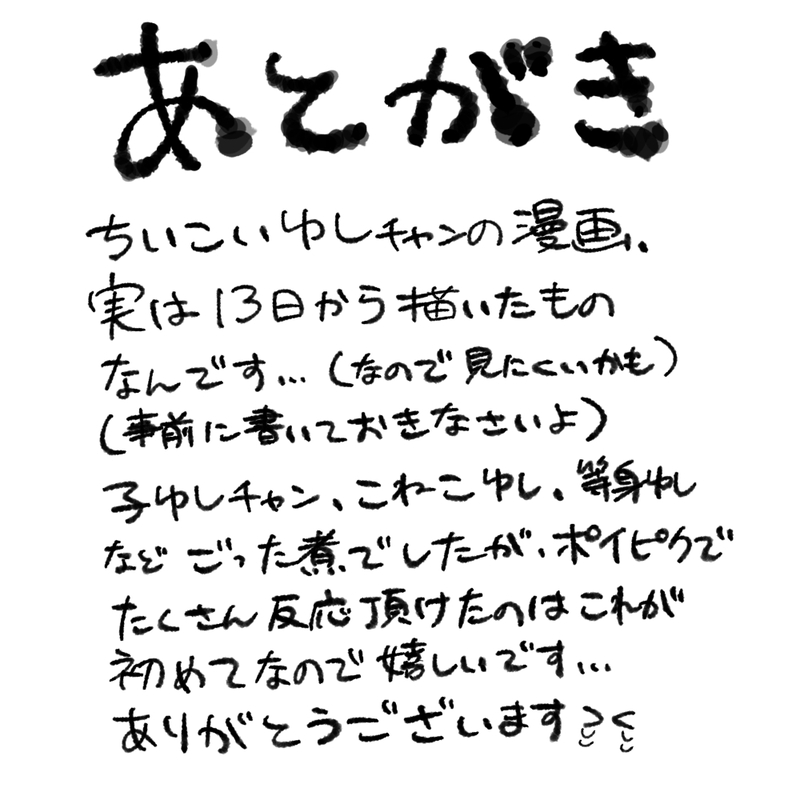 あとがき
ちいこいゆしチャンの漫画、
実は13日から描いたもの
なんです…(なので見にくいかも)
(事前に書いておきなさいよ)
子ゆしチャン、こねこゆし、等身ゆし
などごった煮でしたが、ポイピクで
たくさん反応頂けたのはこれが
初めてなので嬉しいです…
ありがとうございます